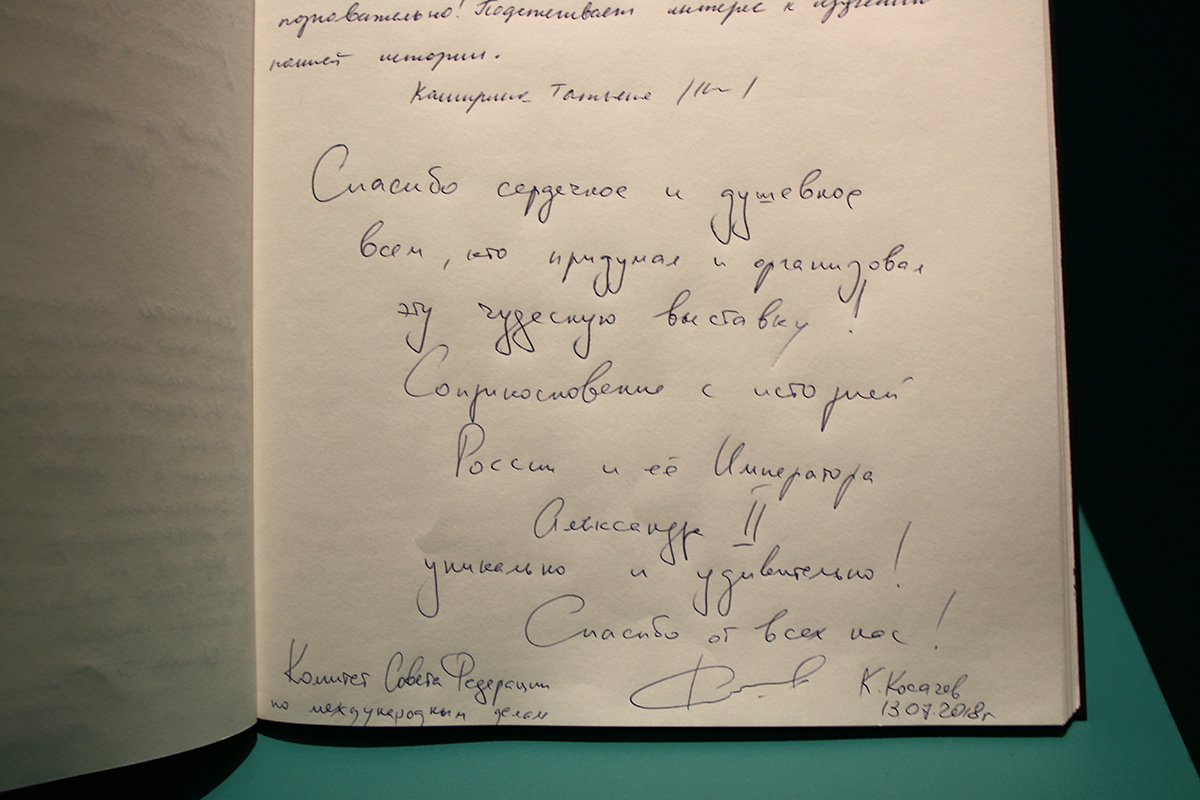 познавательно! Подстегивает интерес к изучению
нашей истории.
Татьяна
Спасибо сердечное и душевное
всем, кто придумал и организовал
эту чудесную выставку!
Соприкосновение с историей
России и её Императора
Александра II
уникально и удивительно!
Спасибо от всех нас!
Комитет Совета Федерации
по международным делам
К. Косачев
13.07.2018г